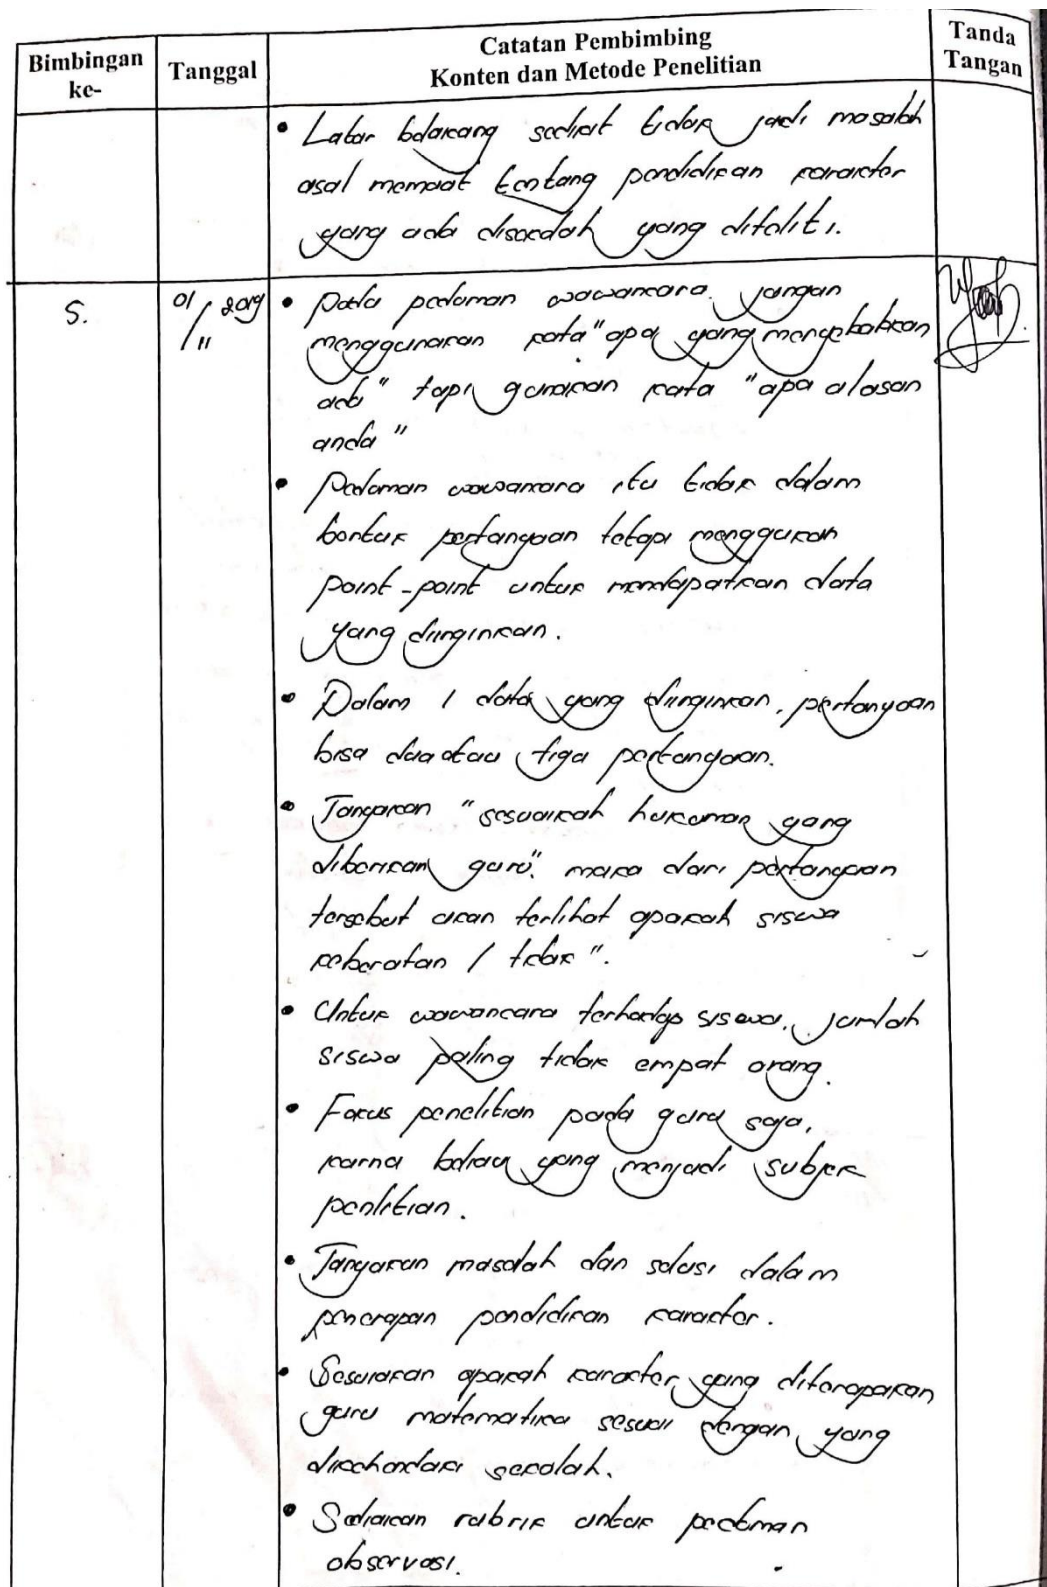 Bimbingan ke-
Tanggal
Catatan Pembimbing
Konten dan Metode Penelitian
Tanda Tangan
• Latar belakang sedikit tidak jadi masalah
asal memuat tentang pendidikan karakter
yang ada disekolah yang diteliti.
5.
01/11 2019
• Pada pedoman wawancara, jangan
menggunakan kata "apa yang menyebabkan
ada" tapi gunakan kata "apa alasan
anda"
• Pedoman wawancara itu tidak dalam
bentuk pertanyaan tetapi menggunakan
point-point untuk mendapatkan data
yang diinginkan.
• Dalam 1 data yang diinginkan, pertanyaan
bisa dua atau tiga pertanyaan.
• Tanyakan "sesuaikah hukuman yang
diberikan guru". maka dari pertanyaan
tersebut akan terlihat apakah siswa
keberatan / tidak".
• Untuk wawancara terhadap siswa, jumlah
siswa paling tidak empat orang.
• Fokus penelitian pada guru saja,
karna beliau yang menjadi subjek
penlitian.
• Tanyakan masalah dan solusi dalam
penerapan pendidikan karakter.
• Sesuaikan apakah karakter yang diterapakan
guru matematika sesuai dengan yang
dikehendaki sekolah.
• Sediakan rubrik untuk pedoman
observasi.